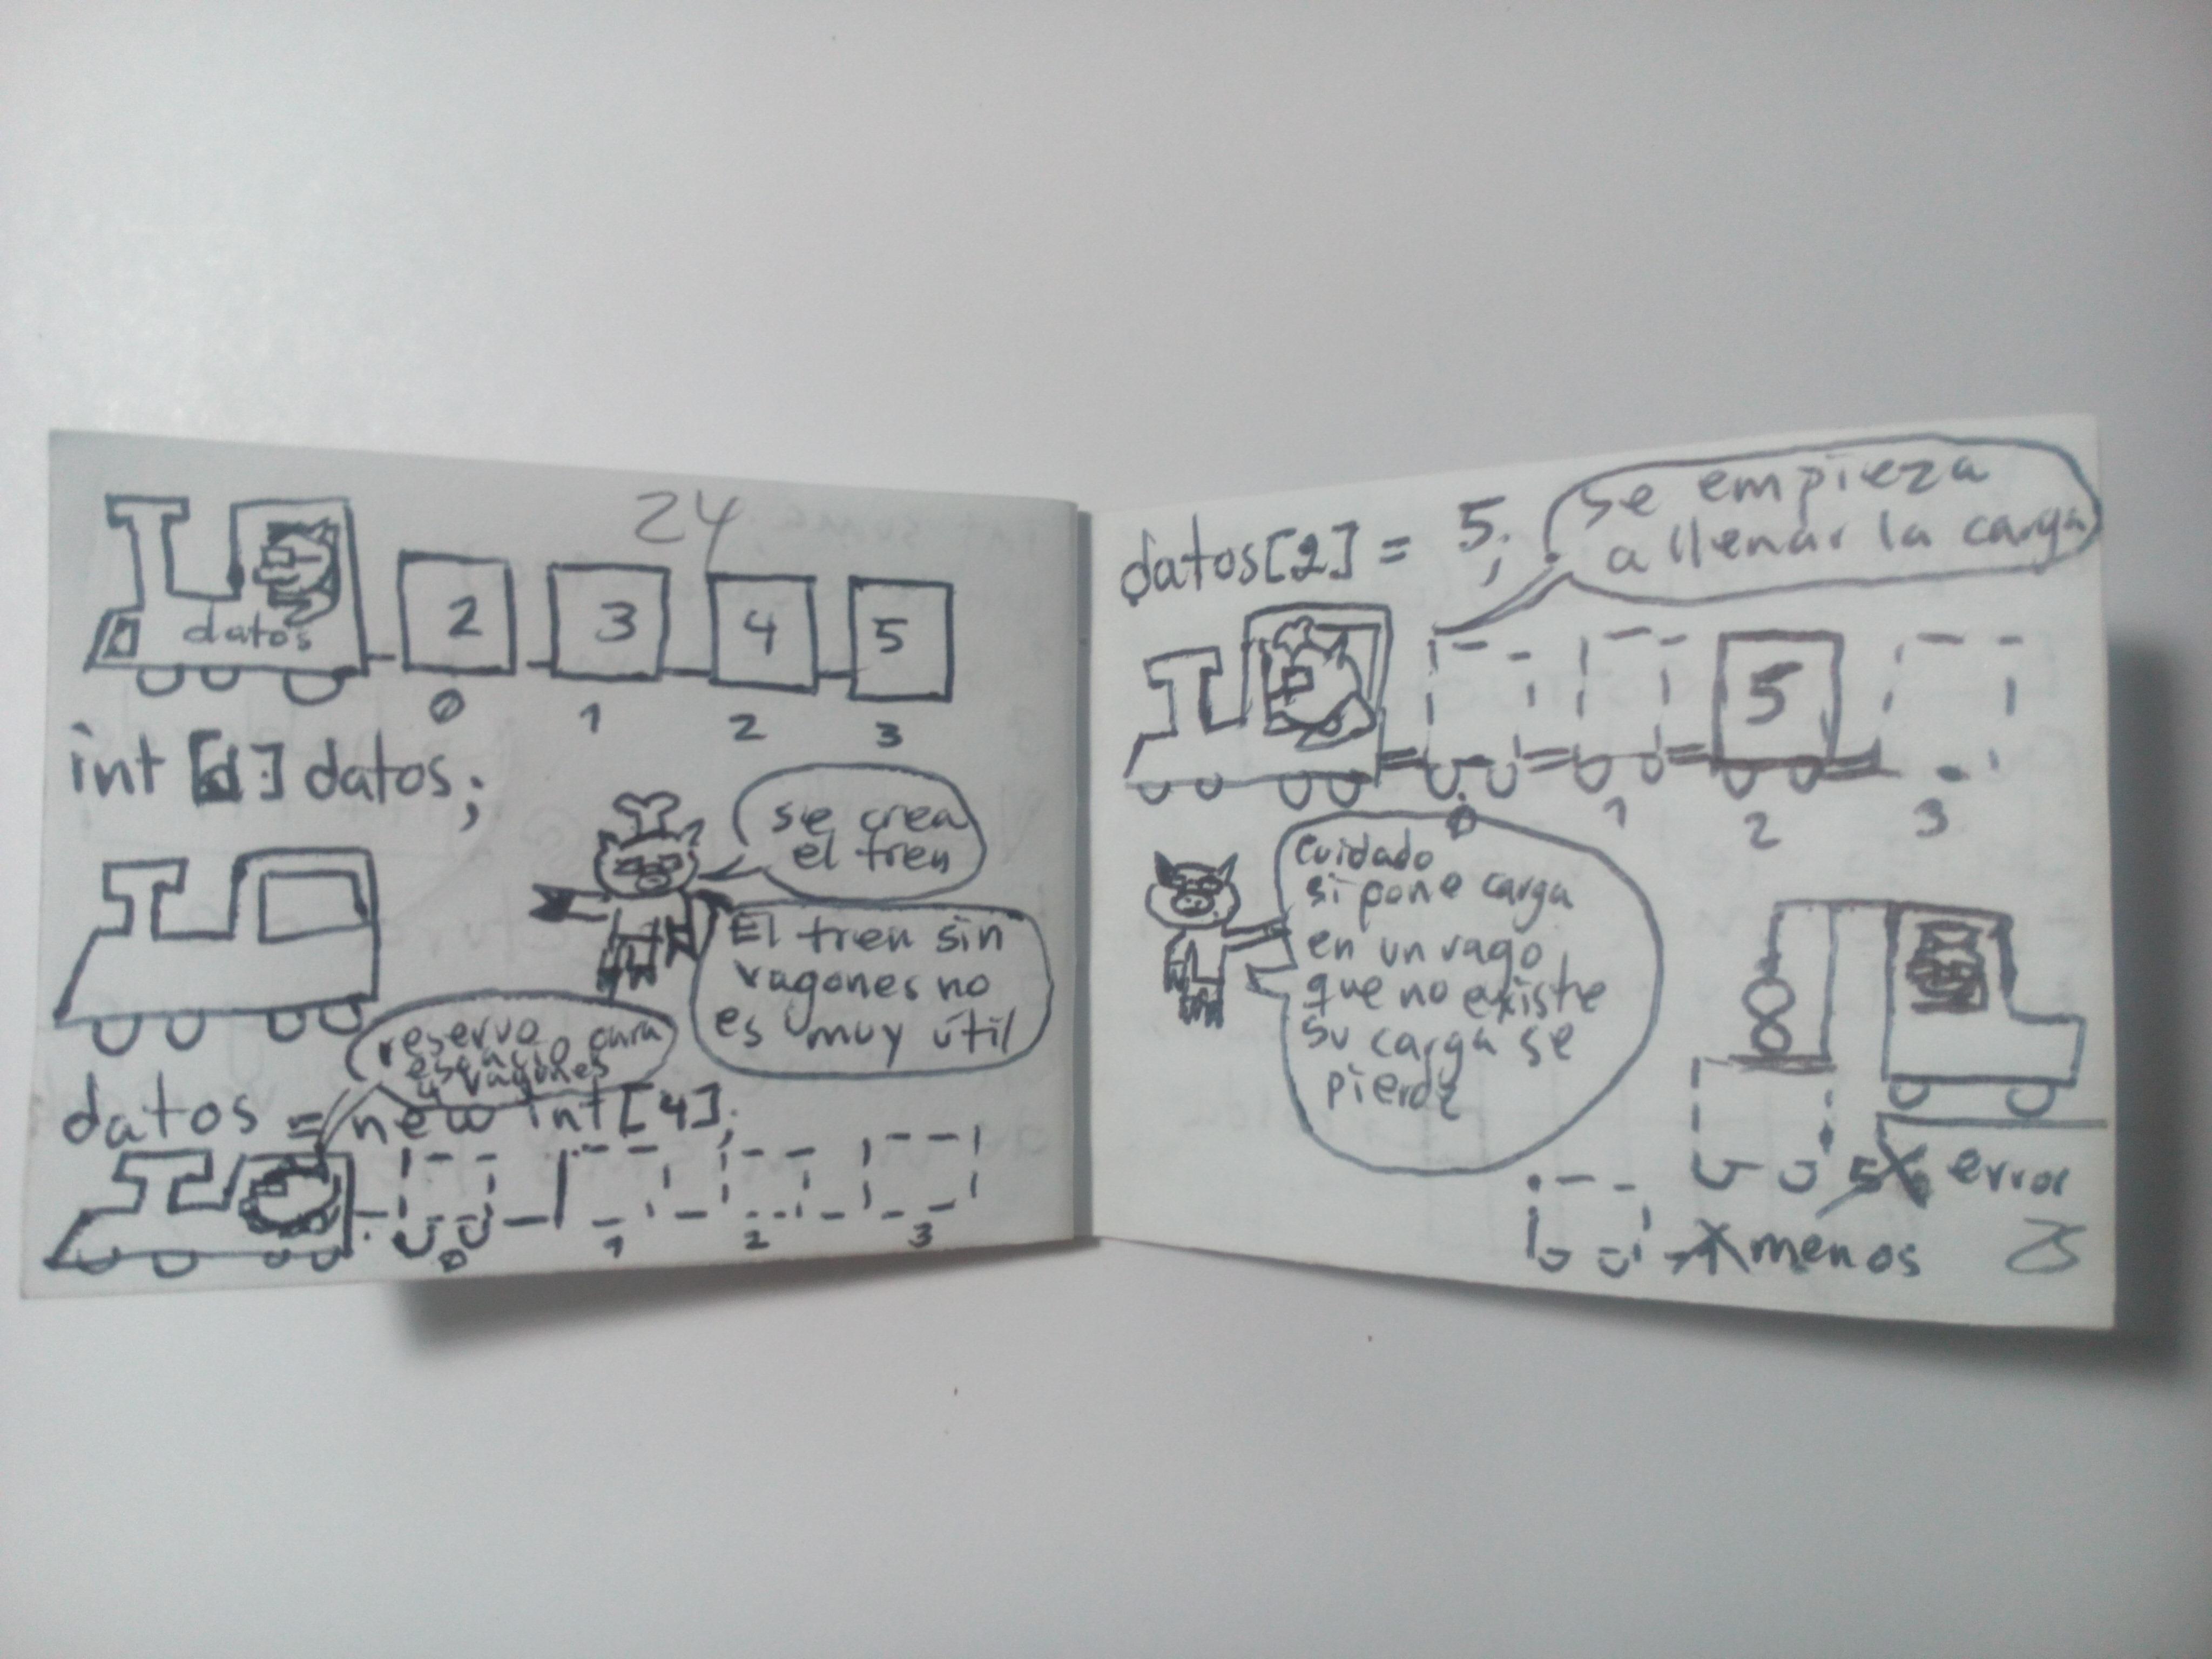 24
datos
2 3 4 5
0 1 2 3
int [] datos;
se crea
el tren
El tren sin
vagones no
es muy útil
reservo
espacio para
4 vagones
datos = new int[4];
0 1 2 3
datos[2] = 5;
se empieza
a llenar la carga
5
0 1 2 3
cuidado
si pone carga
en un vago
que no existe
su carga se
pierde
8
error
menos
25